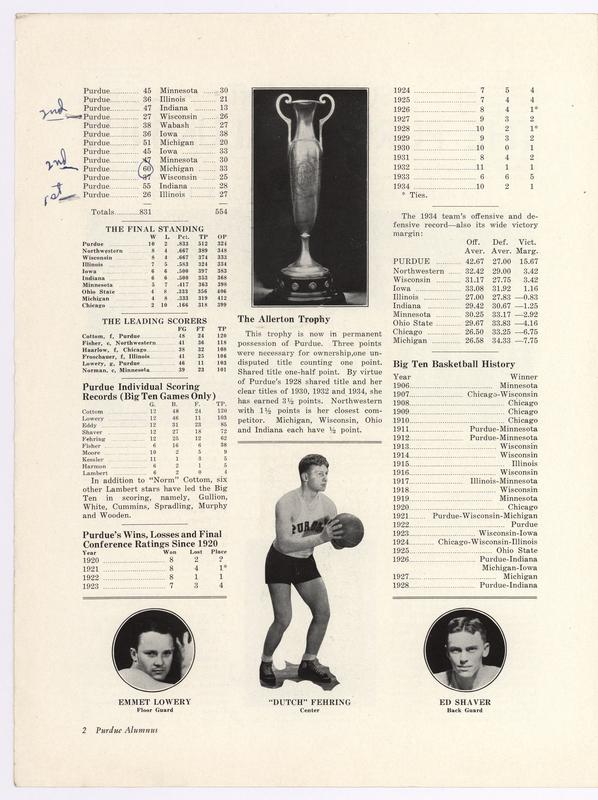 Purdue............ 45 Minnesota ......30
Purdue............ 36 Illinois ...........21
Purdue............ 47 Indiana ..........13
2nd
Purdue............ 27 Wisconsin ......26
Purdue............ 38 Wabash ..........27
Purdue............ 36 Iowa ...............38
Purdue............ 51 Michigan ........20
Purdue............ 45 Iowa ...............33
2nd
Purdue............ 47 Minnesota ......30
Purdue............ 60 Michigan ........33
Purdue............ 37 Wisconsin ......25
1st
Purdue............ 55 Indiana ..........28
Purdue............ 26 Illinois ...........27
Totals..........831 554
THE FINAL STANDING
W L Pct. TP OP
Purdue 10 2 .833 512 324
Northwestern 8 4 .667 389 348
Wisconsin 8 4 .667 374 333
Illinois 7 5 .583 324 334
Iowa 6 6 .500 397 383
Indiana 6 6 .500 353 368
Minnesota 5 7 .417 363 398
Ohio State 4 8 .333 356 406
Michigan 4 8 .333 319 412
Chicago 2 10 .166 318 399
THE LEADING SCORERS
FG FT TP
Cottom, f, Purdue 48 24 120
Fisher, c, Northwestern 41 36 118
Haarlow, f, Chicago 38 32 108
Froschauer, f, Illinois 41 25 106
Lowery, g, Purdue 46 11 103
Norman, c, Minnesota 39 23 101
Purdue Individual Scoring
Records (Big Ten Games Only)
G. B. F. TP.
Cottom 12 48 24 120
Lowery 12 46 11 103
Eddy 12 31 23 85
Shaver 12 27 18 72
Fehring 12 25 12 62
Fisher 6 16 6 38
Moore 10 2 5 9
Kessler 11 1 3 5
Harmon 6 2 1 5
Lambert 6 2 0 4
In addition to "Norm" Cottom, six
other Lambert stars have led the Big
Ten in scoring, namely, Gullion,
White, Cummins, Spradling, Murphy
and Wooden.
Purdue's Wins, Losses and Final
Conference Ratings Since 1920
Year Won Lost Place
1920 8 2 2
1921 8 4 1*
1922 8 1 1
1923 7 3 4
EMMET LOWERY
Floor Guard
2 Purdue Alumnus
The Allerton Trophy
This trophy is now in permanent
possession of Purdue. Three points
were necessary for ownership,one un-
disputed title counting one point.
Shared title one-half point. By virtue
of Purdue's 1928 shared title and her
clear titles of 1930, 1932 and 1934, she
has earned 3½ points. Northwestern
with 1½ points is her closest com-
petitor. Michigan, Wisconsin, Ohio
and Indiana each have ½ point.
PURDUE
"DUTCH" FEHRING
Center
1924 7 5 4
1925 7 4 4
1926 8 4 1*
1927 9 3 2
1928 10 2 1*
1929 9 3 2
1930 10 0 1
1931 8 4 2
1932 11 1 1
1933 6 6 5
1934 10 2 1
* Ties.
The 1934 team's offensive and de-
fensive record—also its wide victory
margin:
Off. Def. Vict.
Aver. Aver. Marg.
PURDUE 42.67 27.00 15.67
Northwestern 32.42 29.00 3.42
Wisconsin 31.17 27.75 3.42
Iowa 33.08 31.92 1.16
Illinois 27.00 27.83 —0.83
Indiana 29.42 30.67 —1.25
Minnesota 30.25 33.17 —2.92
Ohio State 29.67 33.83 —4.16
Chicago 26.50 33.25 —6.75
Michigan 26.58 34.33 —7.75
Big Ten Basketball History
Year Winner
1906 Minnesota
1907 Chicago-Wisconsin
1908 Chicago
1909 Chicago
1910 Chicago
1911 Purdue-Minnesota
1912 Purdue-Minnesota
1913 Wisconsin
1914 Wisconsin
1915 Illinois
1916 Wisconsin
1917 Illinois-Minnesota
1918 Wisconsin
1919 Minnesota
1920 Chicago
1921 Purdue-Wisconsin-Michigan
1922 Purdue
1923 Wisconsin-Iowa
1924 Chicago-Wisconsin-Illinois
1925 Ohio State
1926 Purdue-Indiana
Michigan-Iowa
1927 Michigan
1928 Purdue-Indiana
ED SHAVER
Back Guard